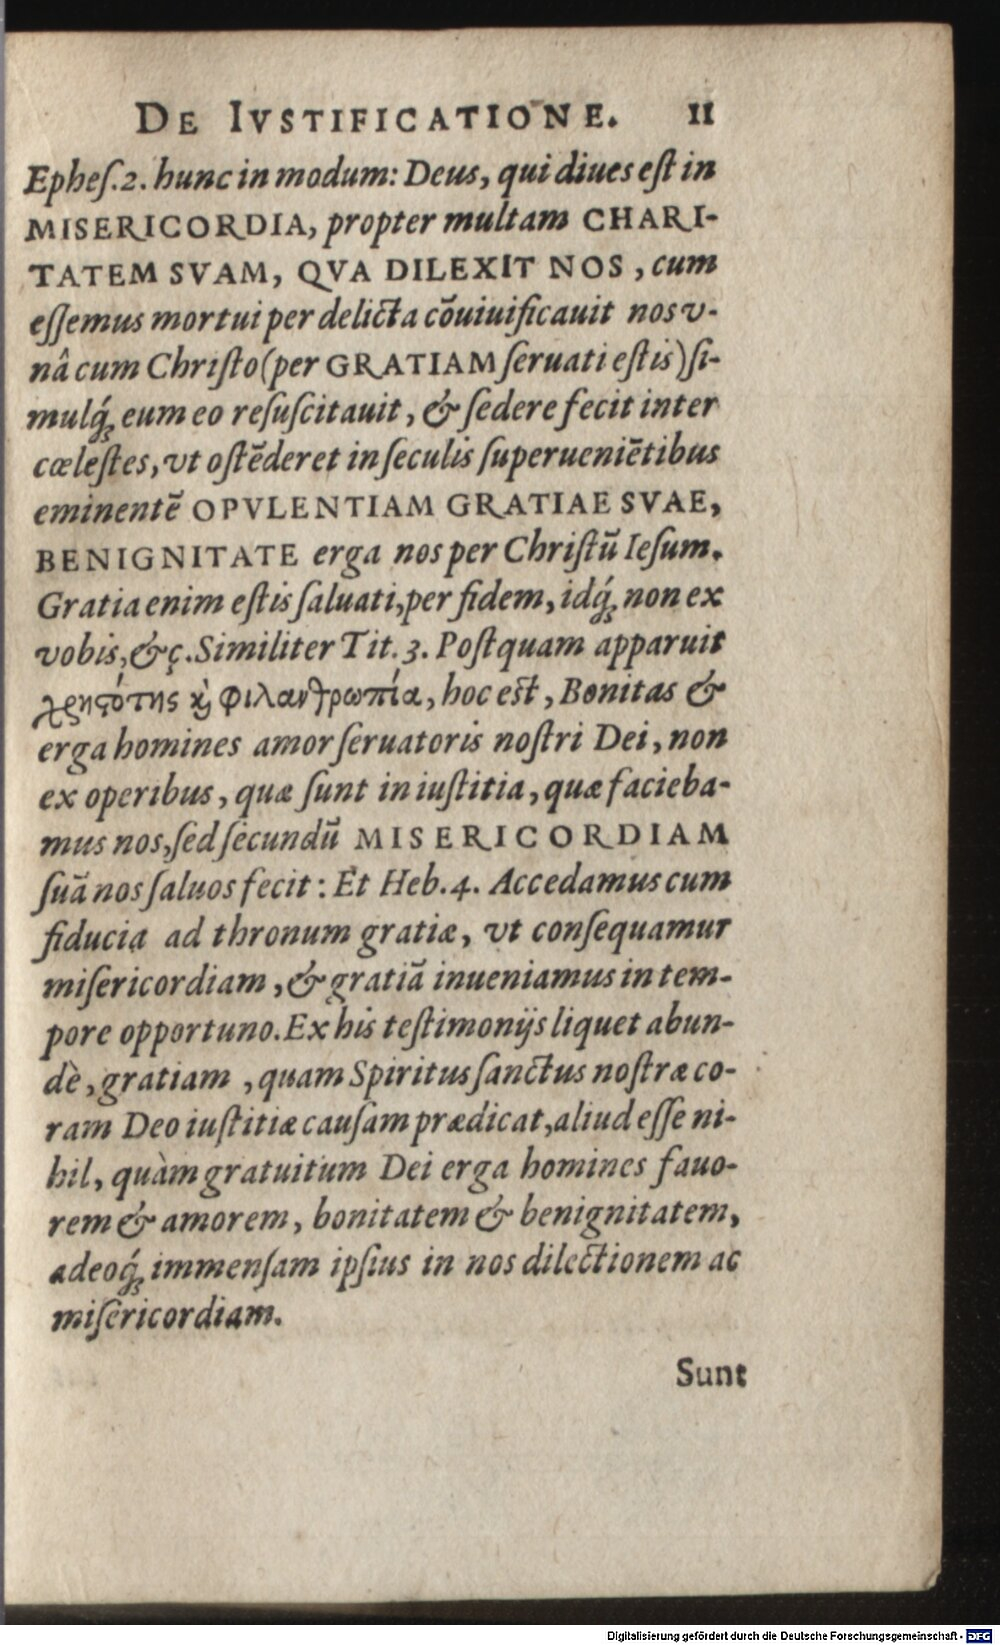 DE IVSTIFICATIONE. 11
Epheſ.2. hunc in modum: Deus, qui diues eſt in
MISERICORDIA, propter multam CHARI-
TATEM SVAM, QVA DILEXIT NOS, cum
eſſemus mortui per delicta cōuiuificauit nos v-
nâ cum Chriſto (per GRATIAM ſeruati eſtis) ſi-
mulq́; eum eo reſuſcitauit, & ſedere fecit inter
cœleſtes, vt oſtēderet in ſeculis ſuperueniētibus
eminentē OPVLENTIAM GRATIAE SVAE,
BENIGNITATE erga nos per Chriſtū Ieſum.
Gratia enim eſtis ſaluati, per fidem, idq́; non ex
vobis, &ç. Similiter Tit. 3. Poſtquam apparuit
χρηϛότης ϗ φιλανθρωπία, hoc eſt, Bonitas &
erga homines amor ſeruatoris noſtri Dei, non
ex operibus, quæ ſunt in iuſtitia, quæ facieba-
mus nos, ſed ſecundū MISERICORDIAM
ſuā nos ſaluos fecit: Et Heb. 4. Accedamus cum
fiducia ad thronum gratiæ, vt conſequamur
miſericordiam, & gratiā inueniamus in tem-
pore opportuno. Ex his teſtimonijs liquet abun-
dè, gratiam, quam Spiritus ſanctus noſtræ co-
ram Deo iuſtitiæ cauſam prædicat, aliud eſſe ni-
hil, quàm gratuitum Dei erga homines fauo-
rem & amorem, bonitatem & benignitatem,
adeoq́; immenſam ipſius in nos dilectionem ac
miſericordiam.
Sunt
Digitalisierung gefördert durch die Deutsche Forschungsgemeinschaft - DFG